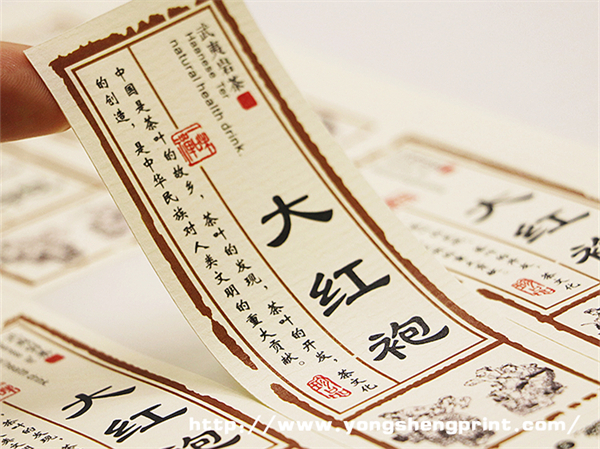 武夷岩茶
natural health drink.
大红袍
中国是茶叶的故乡，茶叶的发现，茶叶的开发，
的创造，是中华民族对人类文明的重大贡献。
茶文化
大红袍
茶文化
大红袍
http://www.yongshengprint.com/